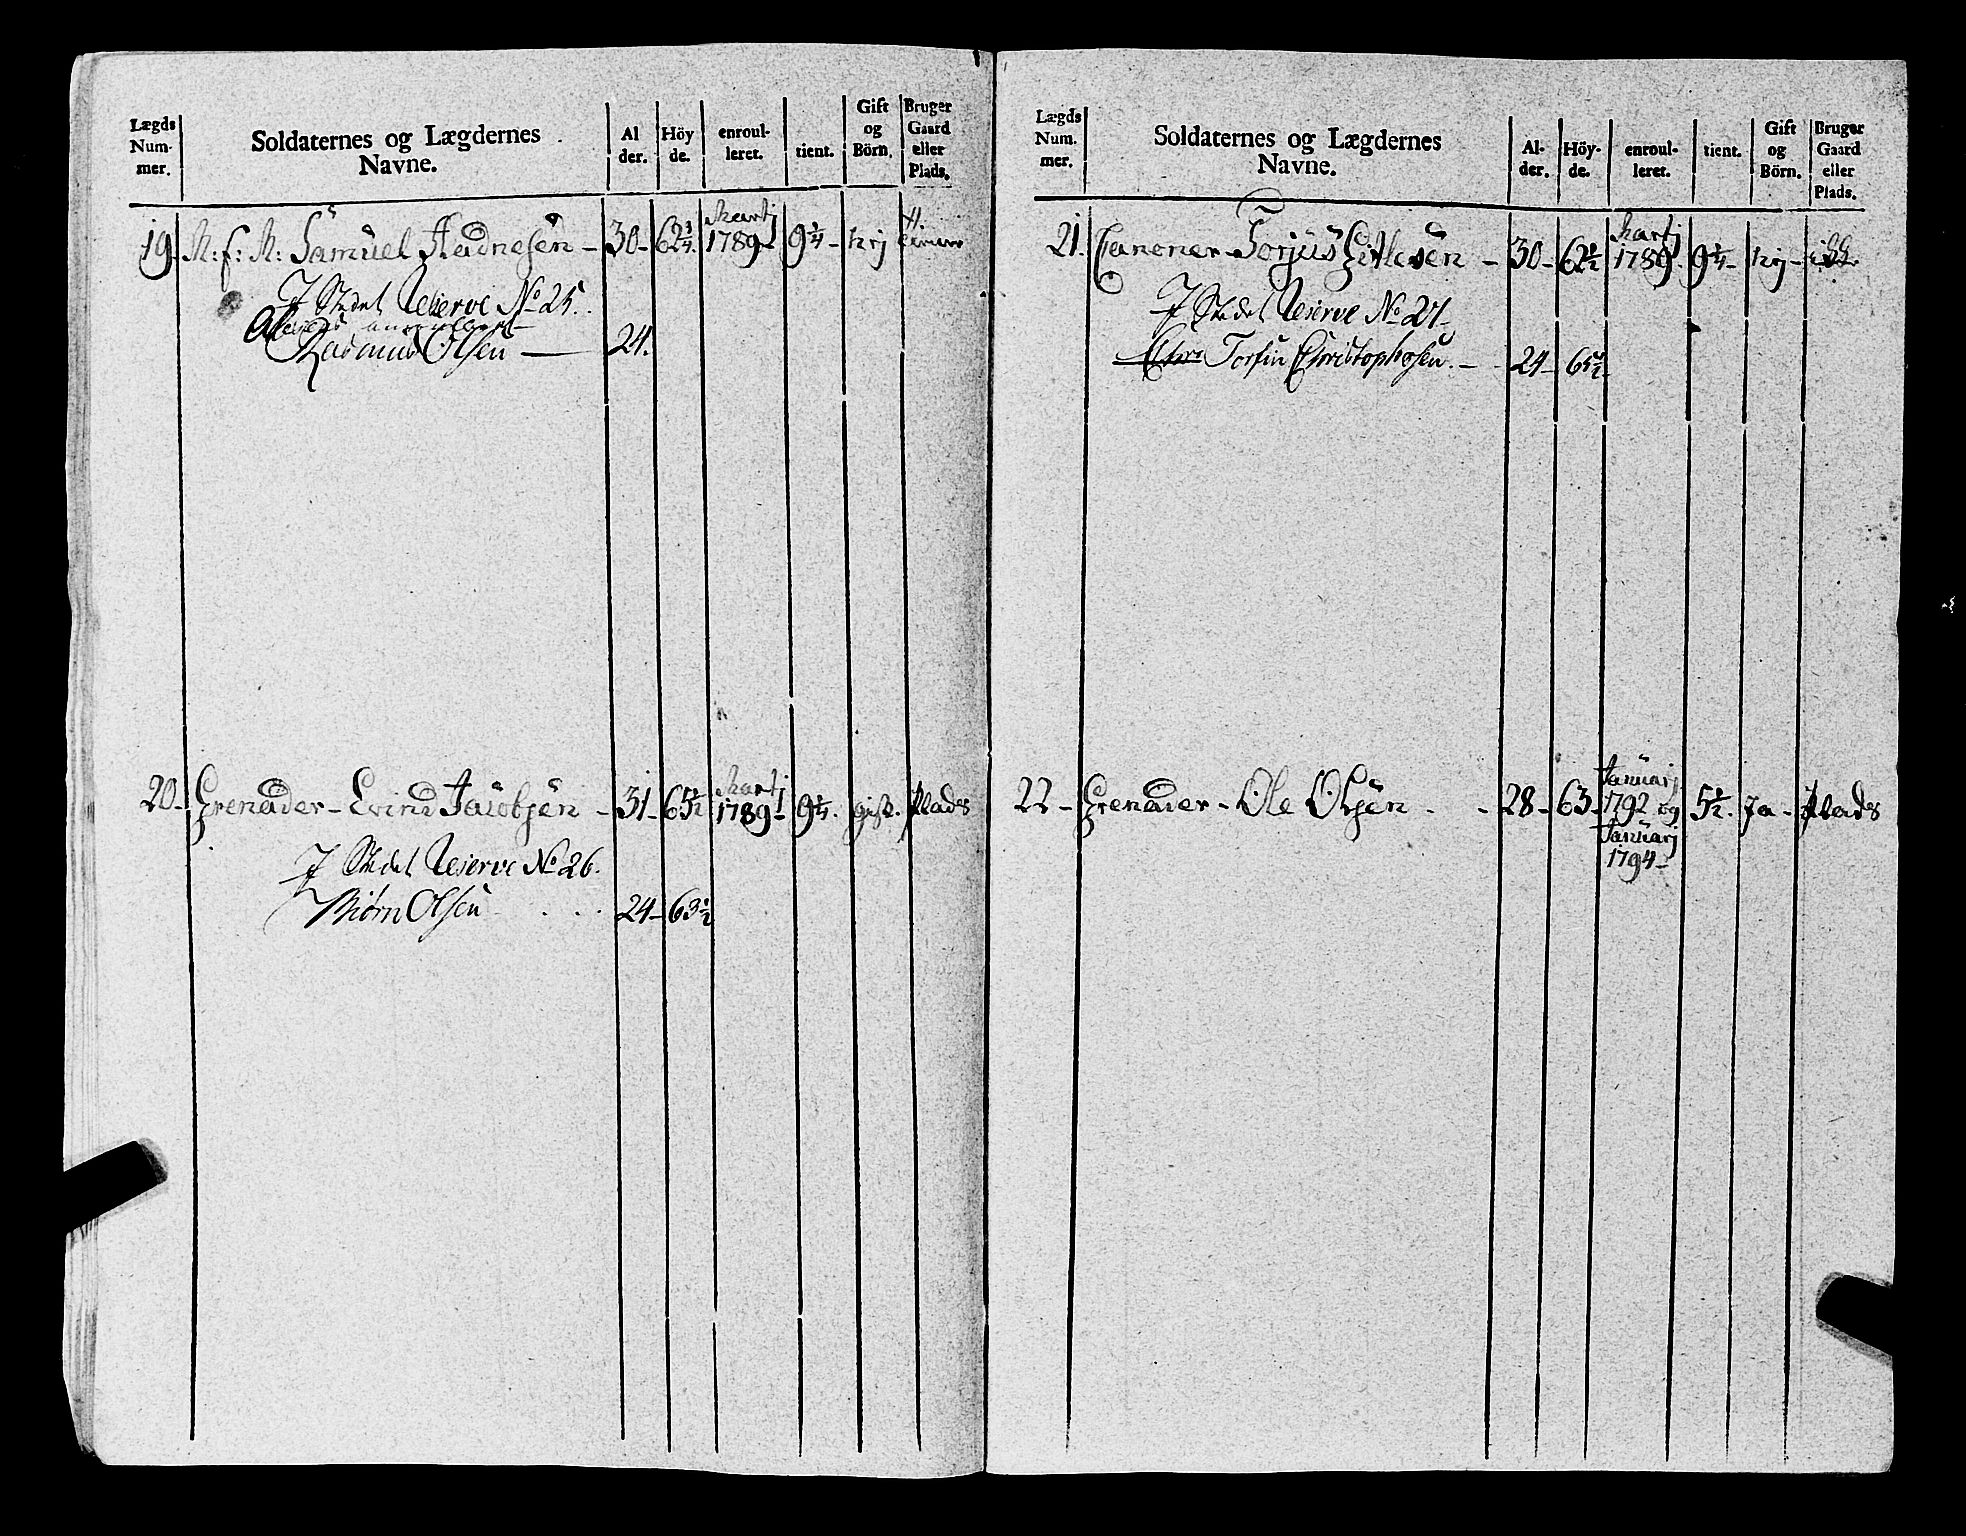 Lægds Num- mer. Soldaternes og Lægdernes Navne. Al der. Höy de. enroul- leret. tient. Gift og Börn. Bruger Gaard eller Plads.
19 M: f: M: Samuel Aadnesen – 30 – 62 3/4. Martj 1789 – 9 1/4 – nej
I Stedet Reserve No 25.
Rasmus Olsen — 24.
20 – Grenader – Evind Jacobsen – 31 – 65 1/2 Martj 1789 – 9 1/4. gift. Plads
I Stedet Reserve No 26.
Biørn Olsen 24 – 63 1/2
Lægds Num- mer. Soldaternes og Lægdernes Navne. Al- der. Höy- de. enroul- leret. tient. Gift og Börn. Bruger Gaard eller Plads.
21. Canoner – Torjus Gitlesen – 30 – 62 1/2 Martj 1789 – 9 1/4 – nej –
I Stedet Reserve No 27.
Torfin Christophersen. – 24 – 65 1/2
22 – Grenader – Ole Olsen – 28 – 63 – Januarj 1792 og Januarj 1794 – 5 1/2. Ja – Plads